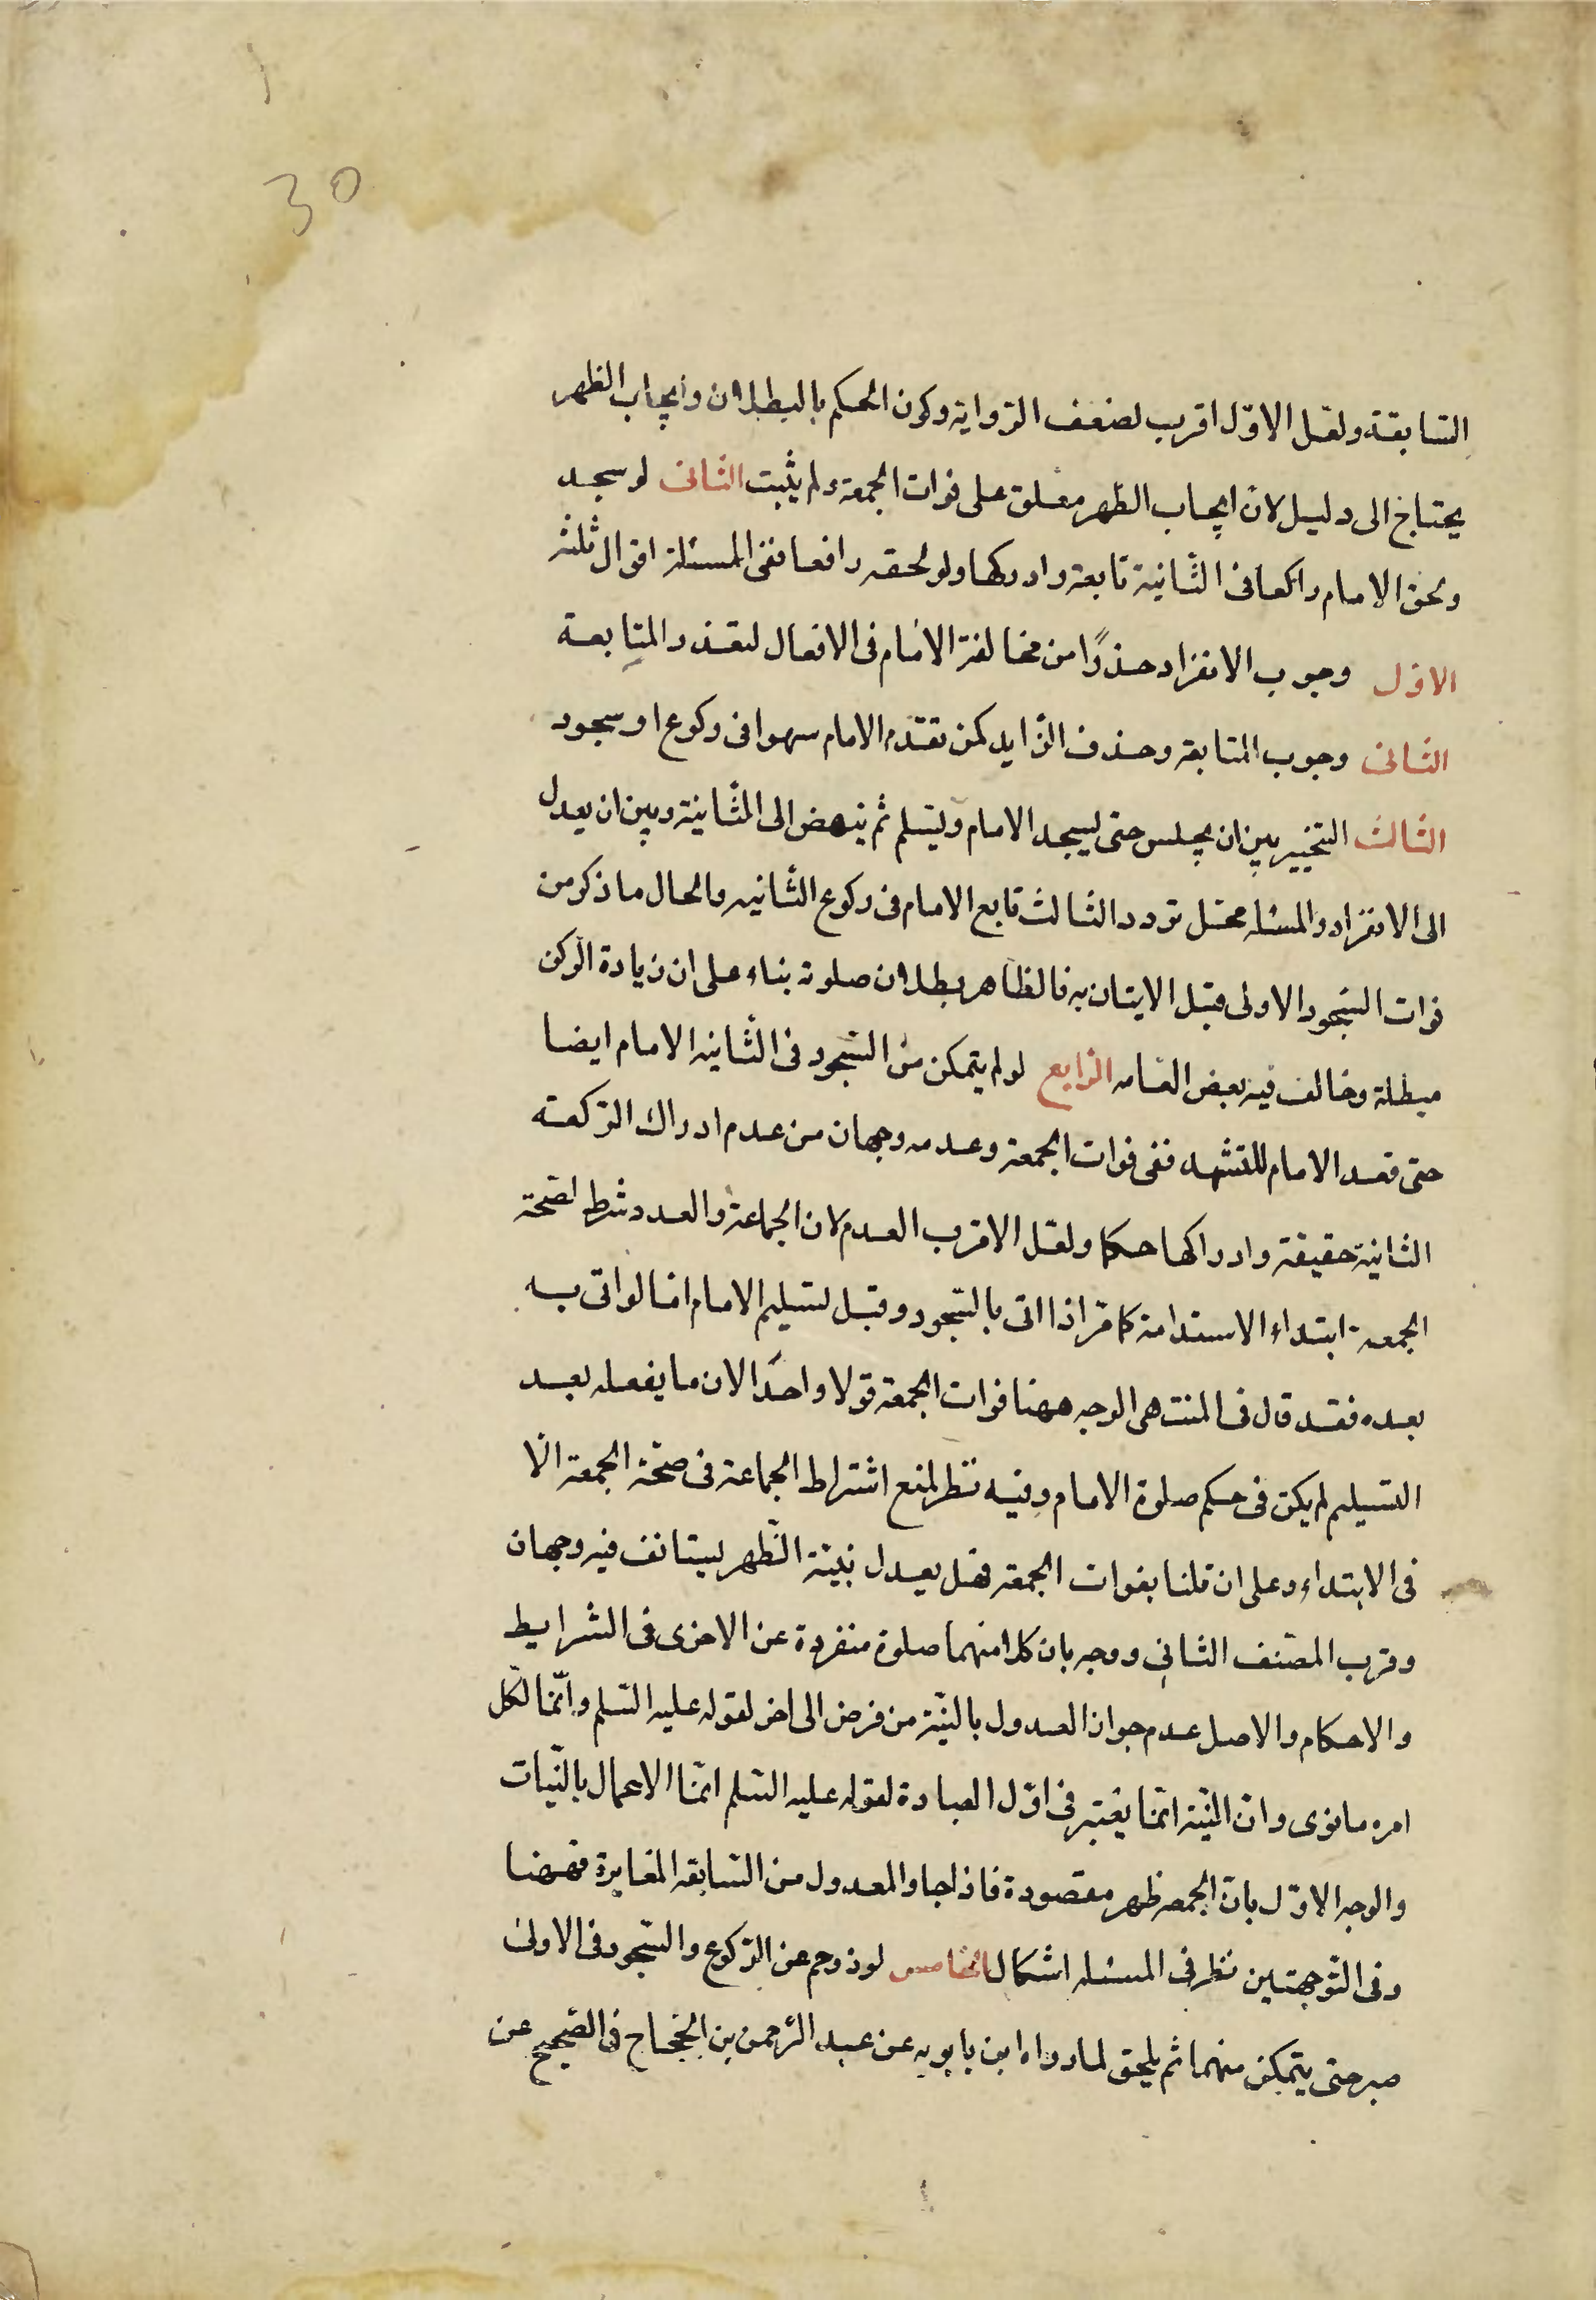 30
السابقة ولعل الاوّل اقرب لضعف الرواية وكون الحكم بالبطلان وايجاب الظهر
يحتاج الى دليل لان ايجاب الظهر معلق على فوات الجمعة ولم يثبت الثانى لو سجد
ولحق الامام راكعا فى الثانية تابعه وادركها ولو لحقه رافعا ففى المسئلة اقوال ثلثة
الاوّل وجوب الانفراد حذرًا من مخالفة الامام فى الافعال لتعذر المتابعة
الثانى وجوب المتابعة وحذف الزايد كمن تقدّم الامام سهوا فى ركوع او سجود
الثالث التخيير بين ان يجلس حتى يسجد الامام ويسلم ثم ينهض الى الثانية وبين ان يعدل
الى الانفراد والمسئله محتمل تردد الثالث تابع الامام فى ركوع الثانيه والحال ما ذكر من
فوات السّجود الاولى قبل الايتان به فالظاهر بطلان صلوته بناء على ان زيادة الركن
مبطلة وخالف فيه بعض العامه الرّابع لو لم يتمكن من السّجود فى الثانيه الامام ايضا
حتى قعد الامام للتشهد ففى فوات الجمعة وعدمه وجهان من عدم ادراك الرّكعة
الثانية حقيقة وادراكها حكما ولعل الاقرب العدم لان الجماعة والعدد شرط لصّحة
الجمعة ابتداء الاستدامة كما مرّ اذا اتى بالسّجود وقبل تسليم الامام امّا لو اتى به
بعده فقد قال فى المنتهى الوجه ههنا فوات الجمعة قولا واحدًا لان ما يفعله بعد
التسليم لم يكن فى حكم صلوة الامام وفيه نظر لمنع اشتراط الجماعة فى صحّة الجمعة الّا
فى الابتداء وعلى ان قلنا بفوات الجمعة فهل يعدل بنيّة الظّهر ليستانف فيه وجهان
وقرب المصّنف الثانى ووجه بان كلا منهما صلوة منفردة عن الاخرى فى الشرايط
والاحكام والاصل عدم جواز العدول بالنيّة من فرض الى اخر لقوله عليه السّلم وانّما لكل
امرء ما نوى وانّ النيّة انّما يعتبر فى اوّل العبادة لقوله عليه السّلم انّما الاعمال بالنّيات
والوجه الاوّل بانّ الجمعه ظهر مقصودة فاذا جاز المعدول من السّابقه المغايرة فههنا
وفى التّوجهتين نظر فى المسئله اشكال الخامس لو زوحم عن الرّكوع والسّجود فى الاولى
صبر حتى يتمكن منهما ثم يلحق لما رواه ابن بابويه عن عبد الرّحمن بن الحجّاج فى الصّحيح عن